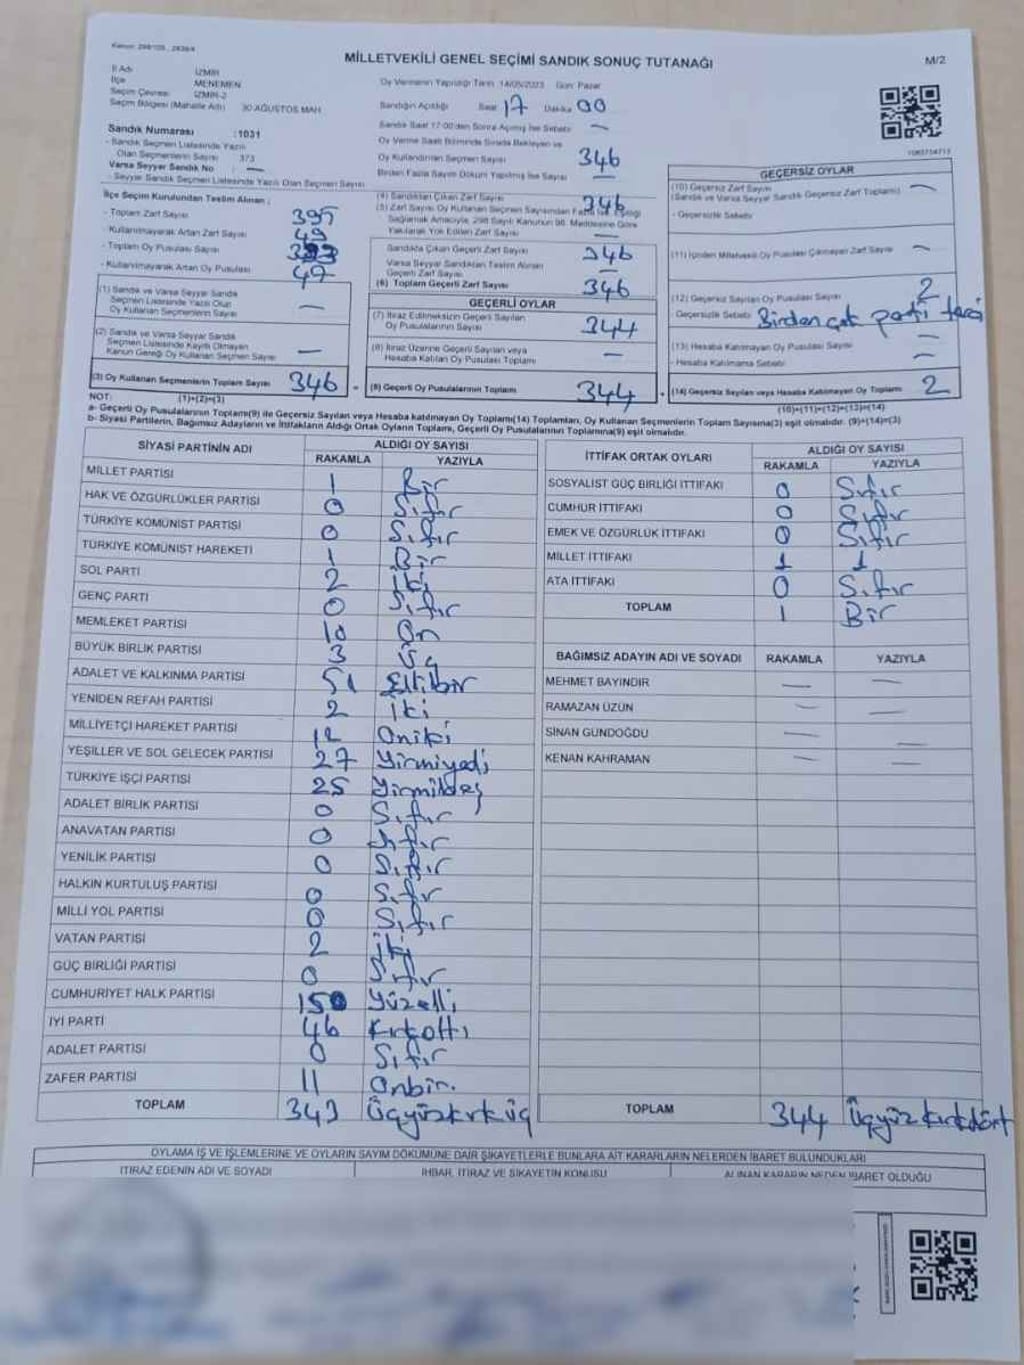 MİLLETVEKİLİ GENEL SEÇİMİ SANDIK SONUÇ TUTANAĞI
M/2
İl Adı İZMİR
İlçe MENEMEN
Seçim Çevresi İZMİR-2
Seçim Bölgesi (Mahalle Adı) 30 AĞUSTOS MAH.
Sandık Numarası :1031
- Sandık Seçmen Listesinde Yazılı
Olan Seçmenlerin Sayısı 373
Varsa Seyyar Sandık No —
- Seyyar Sandık Seçmen Listesinde Yazılı Olan Seçmen Sayısı
Oy Vermenin Yapıldığı Tarih 14/05/2023 Gün: Pazar
Sandığın Açıldığı Saat 17 Dakika 00
Sandık Saat 17:00'den Sonra Açılmış İse Sebebi —
Oy Verme Saati Bitiminde Sırada Bekleyen ve
Oy Kullandırılan Seçmen Sayısı 346
Birden Fazla Sayım Dökümü Yapılmış İse Sayısı —
İlçe Seçim Kurulundan Teslim Alınan :
- Toplam Zarf Sayısı 395
- Kullanılmayarak Artan Zarf Sayısı 49
- Toplam Oy Pusulası Sayısı
- Kullanılmayarak Artan Oy Pusulası
(1) Sandık ve Varsa Seyyar Sandık
Seçmen Listesinde Yazılı Olan
Oy Kullanan Seçmenlerin Sayısı —
(2) Sandık ve Varsa Seyyar Sandık
Seçmen Listesinde Kayıtlı Olmayan
Kanun Gereği Oy Kullanan Seçmen Sayısı —
(3) Oy Kullanan Seçmenlerin Toplam Sayısı 346
(1)+(2)=(3)
(4) Sandıktan Çıkan Zarf Sayısı 346
(5) Zarf Sayısı Oy Kullanan Seçmen Sayısından Fazla İse, Eşitliği
Sağlamak Amacıyla, 298 Sayılı Kanunun 98. Maddesine Göre
Yakılarak Yok Edilen Zarf Sayısı —
Sandıkta Çıkan Geçerli Zarf Sayısı 346
Varsa Seyyar Sandıktan Teslim Alınan
Geçerli Zarf Sayısı —
(6) Toplam Geçerli Zarf Sayısı 346
GEÇERLİ OYLAR
(7) İtiraz Edilmeksizin Geçerli Sayılan
Oy Pusulalarının Sayısı 344
(8) İtiraz Üzerine Geçerli Sayılan veya
Hesaba Katılan Oy Pusulası Toplamı —
(9) Geçerli Oy Pusulalarının Toplamı 344
GEÇERSİZ OYLAR
(10) Geçersiz Zarf Sayısı
(Sandık ve Varsa Seyyar Sandık Geçersiz Zarf Toplamı) —
- Geçersizlik Sebebi
(11) İçinden Milletvekili Oy Pusulası Çıkmayan Zarf Sayısı —
(12) Geçersiz Sayılan Oy Pusulası Sayısı 2
- Geçersizlik Sebebi Birden çok parti
(13) Hesaba Katılmayan Oy Pusulası Sayısı —
- Hesaba Katılmama Sebebi —
(14) Geçersiz Sayılan veya Hesaba Katılmayan Oy Toplamı 2
(10)+(11)+(12)+(13)=(14)
NOT:
a- Geçerli Oy Pusulalarının Toplamı(9) ile Geçersiz Sayılan veya Hesaba katılmayan Oy Toplamı(14) Toplamları, Oy Kullanan Seçmenlerin Toplam Sayısına(3) eşit olmalıdır. (9)+(14)=(3)
b- Siyasi Partilerin, Bağımsız Adayların ve İttifakların Aldığı Ortak Oyların Toplamı, Geçerli Oy Pusulalarının Toplamına(9) eşit olmalıdır.
SİYASİ PARTİNİN ADI ALDIĞI OY SAYISI
RAKAMLA YAZIYLA
MİLLET PARTİSİ 1 Bir
HAK VE ÖZGÜRLÜKLER PARTİSİ 0 Sıfır
TÜRKİYE KOMÜNİST PARTİSİ 0 Sıfır
TÜRKİYE KOMÜNİST HAREKETİ 1 Bir
SOL PARTİ 2 İki
GENÇ PARTİ 0 Sıfır
MEMLEKET PARTİSİ 10 On
BÜYÜK BİRLİK PARTİSİ 3 Üç
ADALET VE KALKINMA PARTİSİ 51 Ellibir
YENİDEN REFAH PARTİSİ 2 İki
MİLLİYETÇİ HAREKET PARTİSİ 12 Oniki
YEŞİLLER VE SOL GELECEK PARTİSİ 27 Yirmiyedi
TÜRKİYE İŞÇİ PARTİSİ 25 Yirmibeş
ADALET BİRLİK PARTİSİ 0 Sıfır
ANAVATAN PARTİSİ 0 Sıfır
YENİLİK PARTİSİ 0 Sıfır
HALKIN KURTULUŞ PARTİSİ 0 Sıfır
MİLLİ YOL PARTİSİ 0 Sıfır
VATAN PARTİSİ 2 İki
GÜÇ BİRLİĞİ PARTİSİ 0 Sıfır
CUMHURİYET HALK PARTİSİ 150 Yüzelli
İYİ PARTİ 46 Kırkaltı
ADALET PARTİSİ 0 Sıfır
ZAFER PARTİSİ 11 Onbir.
TOPLAM 343 Üçyüzkırküç
İTTİFAK ORTAK OYLARI ALDIĞI OY SAYISI
RAKAMLA YAZIYLA
SOSYALİST GÜÇ BİRLİĞİ İTTİFAKI 0 Sıfır
CUMHUR İTTİFAKI 0 Sıfır
EMEK VE ÖZGÜRLÜK İTTİFAKI 0 Sıfır
MİLLET İTTİFAKI 1 1
ATA İTTİFAKI 0 Sıfır
TOPLAM 1 Bir
BAĞIMSIZ ADAYIN ADI VE SOYADI RAKAMLA YAZIYLA
MEHMET BAYINDIR — —
RAMAZAN ÜZÜN — —
SİNAN GÜNDOĞDU — —
KENAN KAHRAMAN — —
TOPLAM 344 Üçyüzkırkdört
OYLAMA İŞ VE İŞLEMLERİNE VE OYLARIN SAYIM DÖKÜMÜNE DAİR ŞİKAYETLERLE BUNLARA AİT KARARLARIN NELERDEN İBARET BULUNDUKLARI
İTİRAZ EDENİN ADI VE SOYADI İHBAR, İTİRAZ VE ŞİKAYETİN KONUSU ALINAN KARARIN NEDEN İBARET OLDUĞU